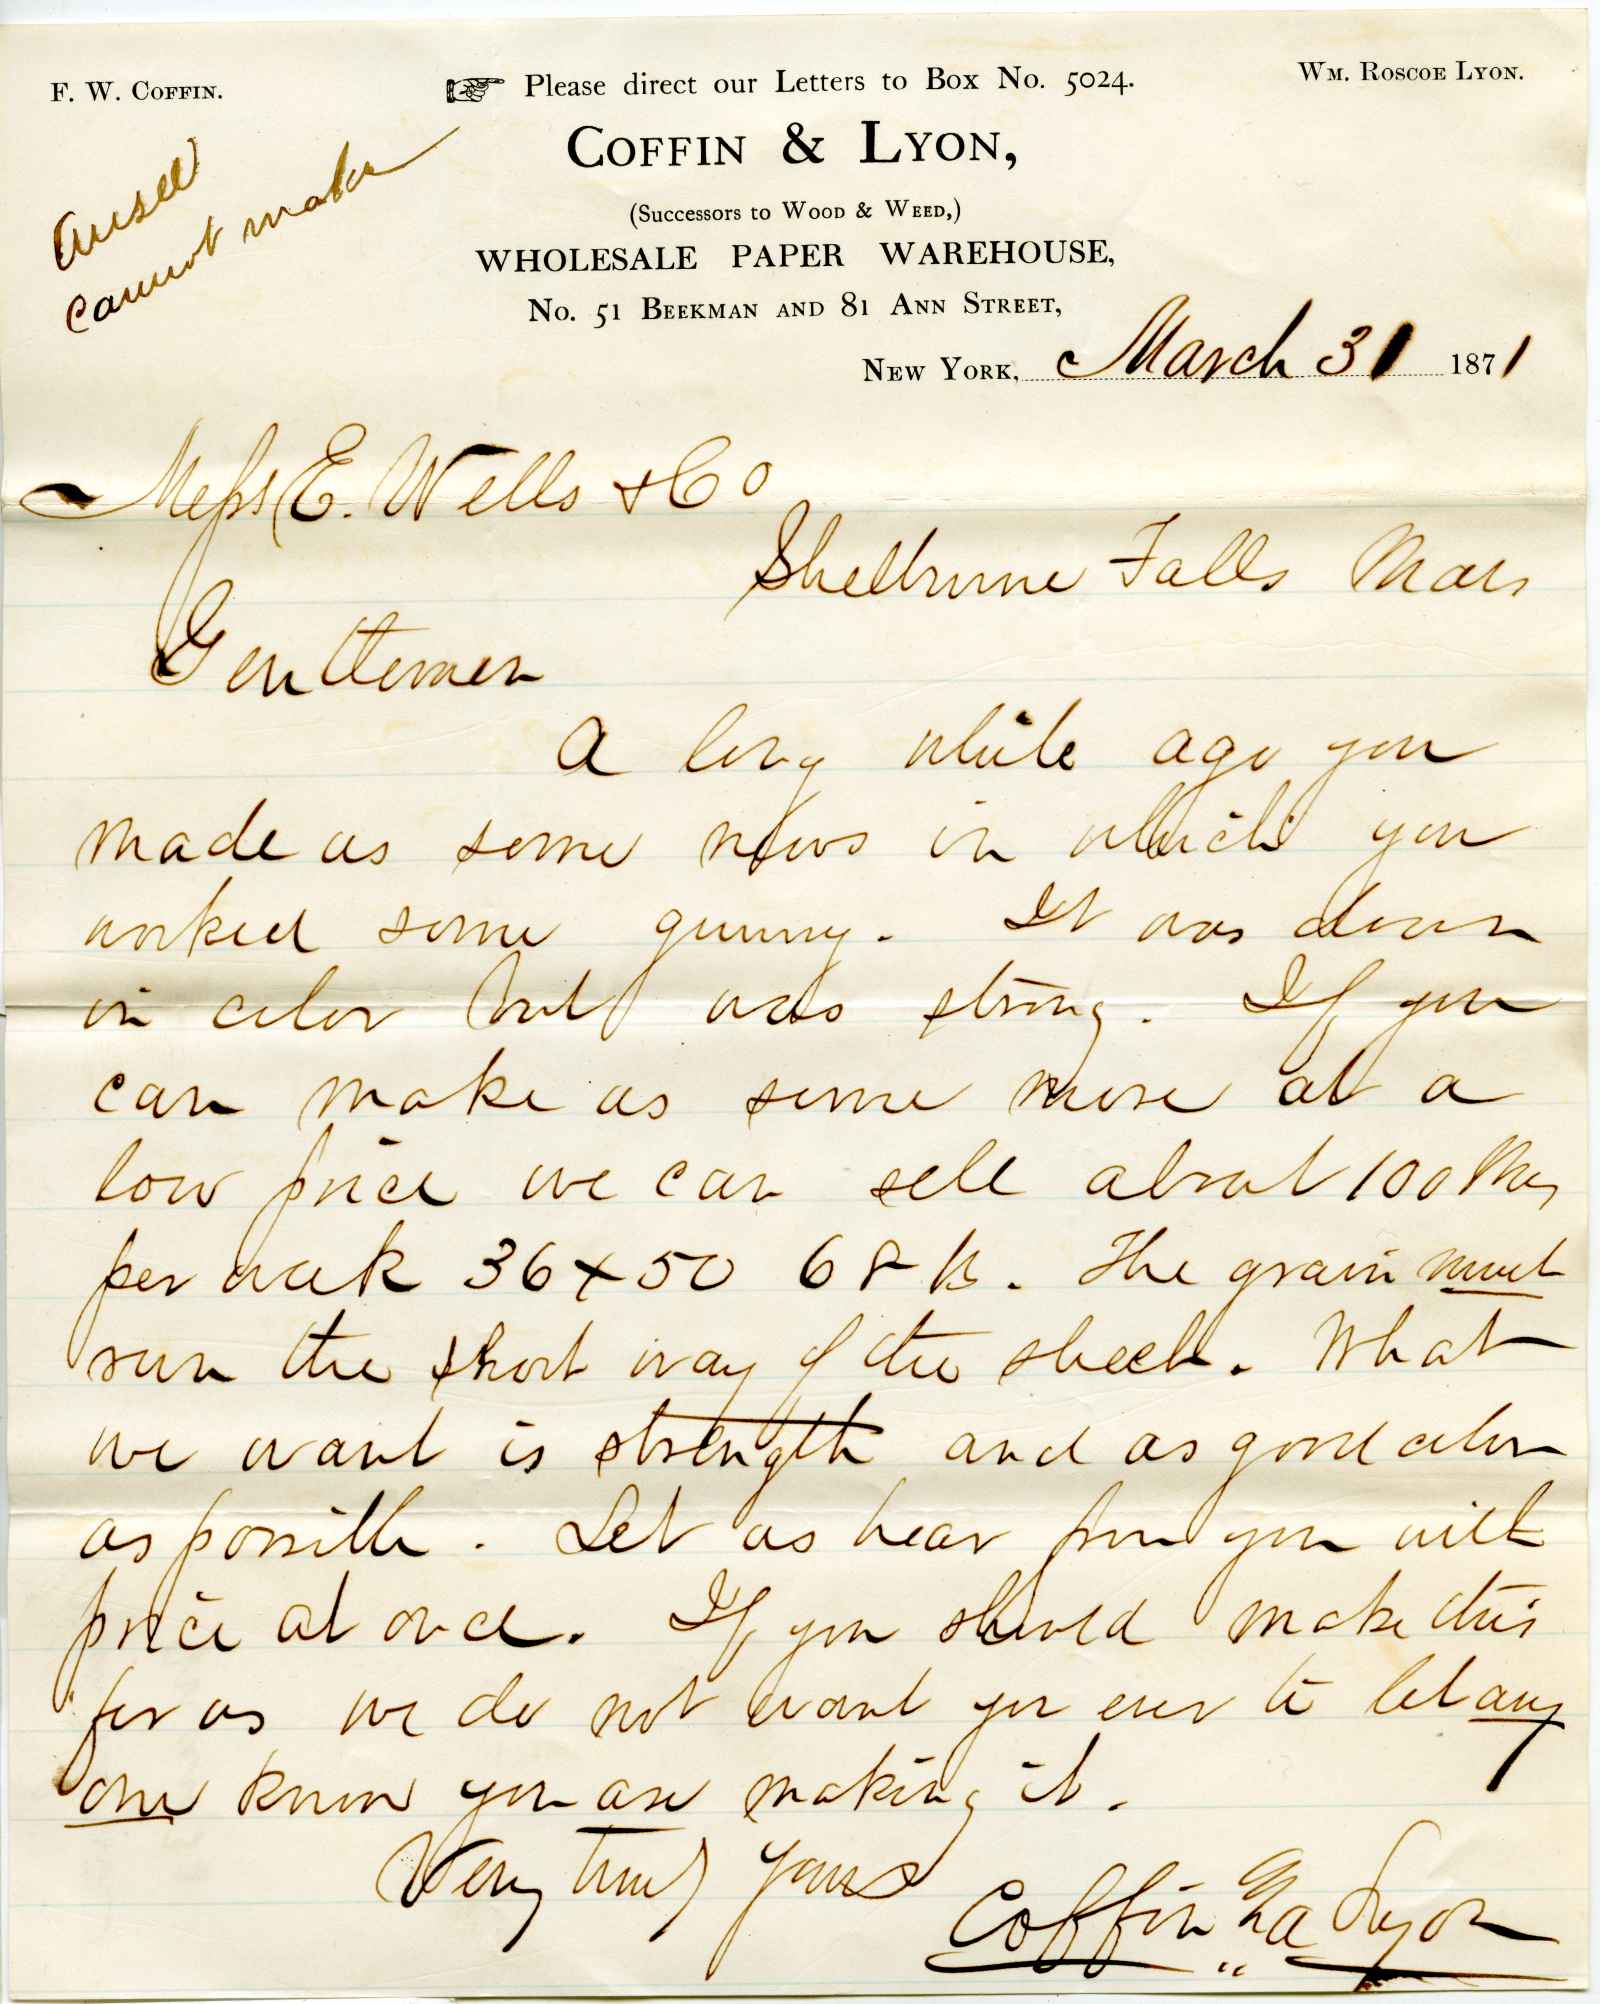 F. W. COFFIN.
Please direct our Letters to Box No. 5024.
WM. ROSCOE LYON.
COFFIN & LYON,
(Successors to WOOD & WEED,)
WHOLESALE PAPER WAREHOUSE,
No. 51 BEEKMAN AND 81 ANN STREET,
NEW YORK, March 31 1871
cannot make
Mess E. Wells & Co
Shelburne Falls Mass
Gentlemen
A long while ago you
made us some news in which you
worked some gunny. It was down
in color but was strong. If you
can make us some more at a
low price we can sell about 100
per week 36x50 68 lb. The grain must
run the short way of the sheet. What
we want is strength and as good color
as possible. Let us hear from you with
price at once. If you should make this
for us we do not want you ever to let any
one know you are making it.
Very truly yours
Coffin & Lyon